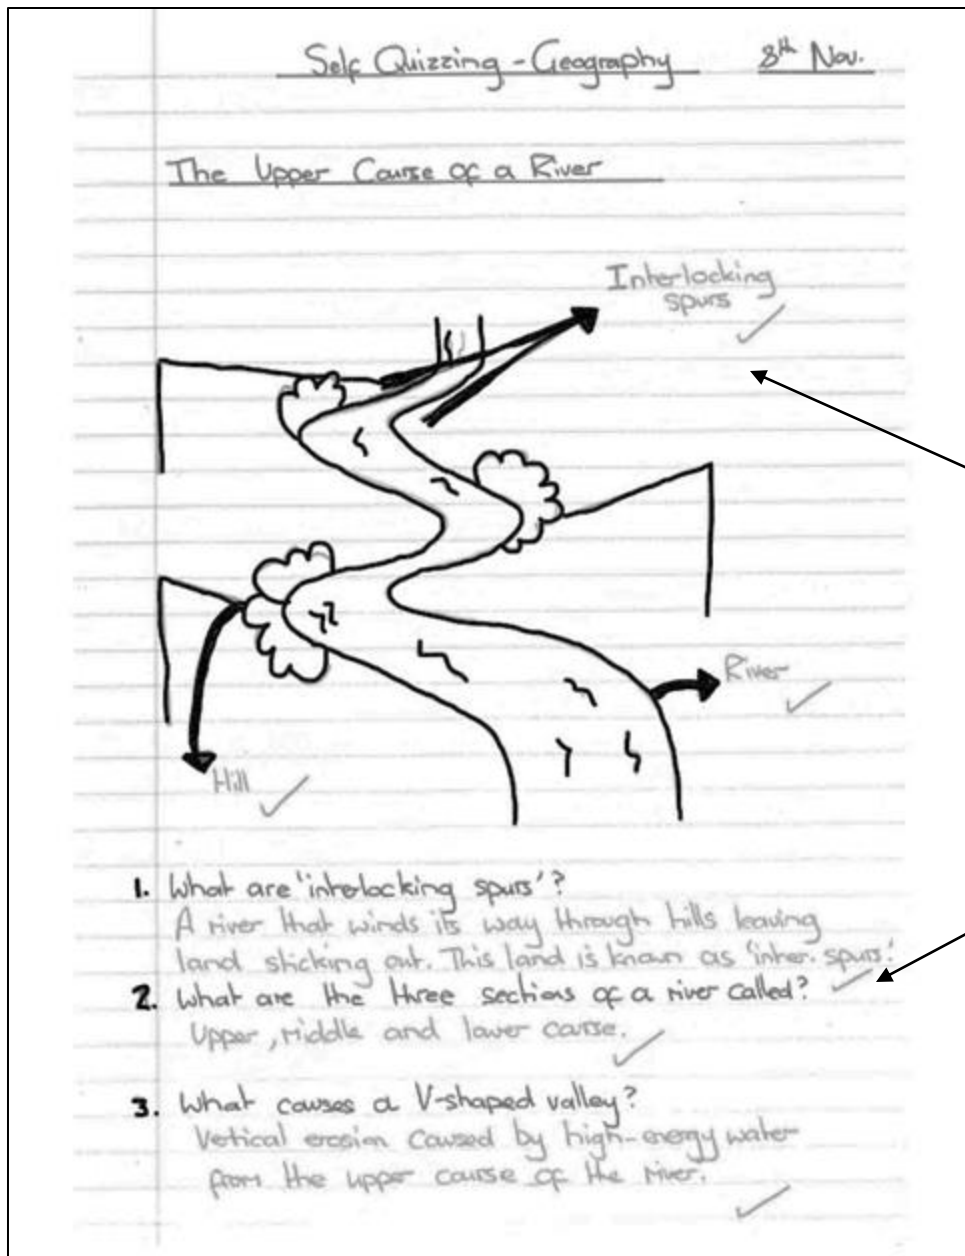 Self Quizzing - Geography 8th Nov.
The Upper Course of a River
Interlocking
spurs
River
Hill
1. What are 'interlocking spurs'?
A river that winds its way through hills leaving
land sticking out. This land is known as 'inter. spurs'.
2. What are the three sections of a river called?
Upper, middle and lower course.
3. What causes a V-shaped valley?
Vertical erosion caused by high-energy water
from the upper course of the river.